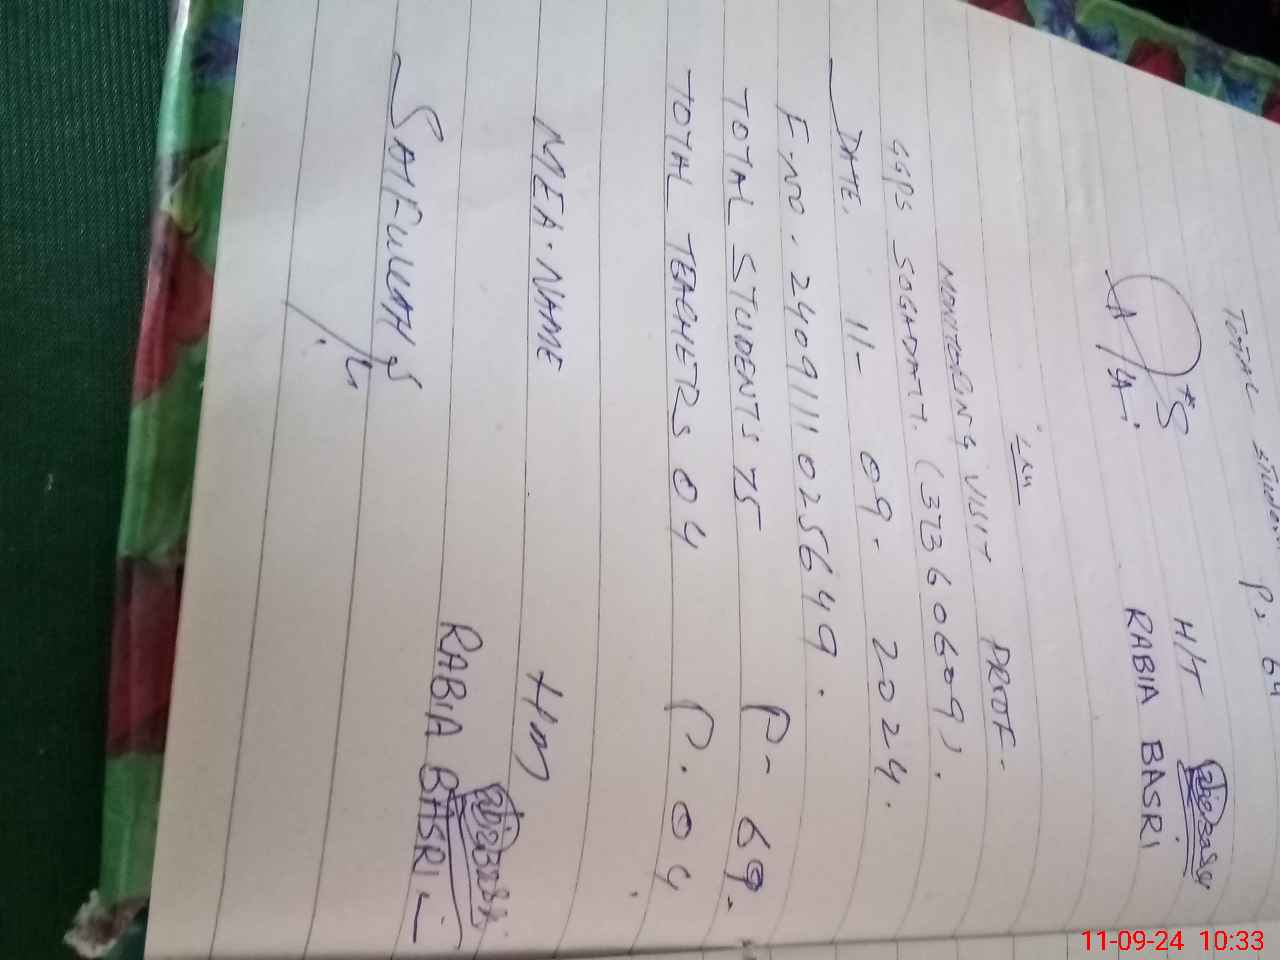 TOTAL STUDEN P: 64
H/T
RABIA BASRI
MONITERING VISIT PROOF-
GGPS SOGADATT. (37360609).
DATE. 11- 09- 2024.
F-NO. 2409111025649.
TOTAL STUDENTS 75 P- 69.
TOTAL TEACHERS 04 P. 04
MEA. NAME HM
SAIFULLAH S RABIA BASRI
11-09-24 10:33